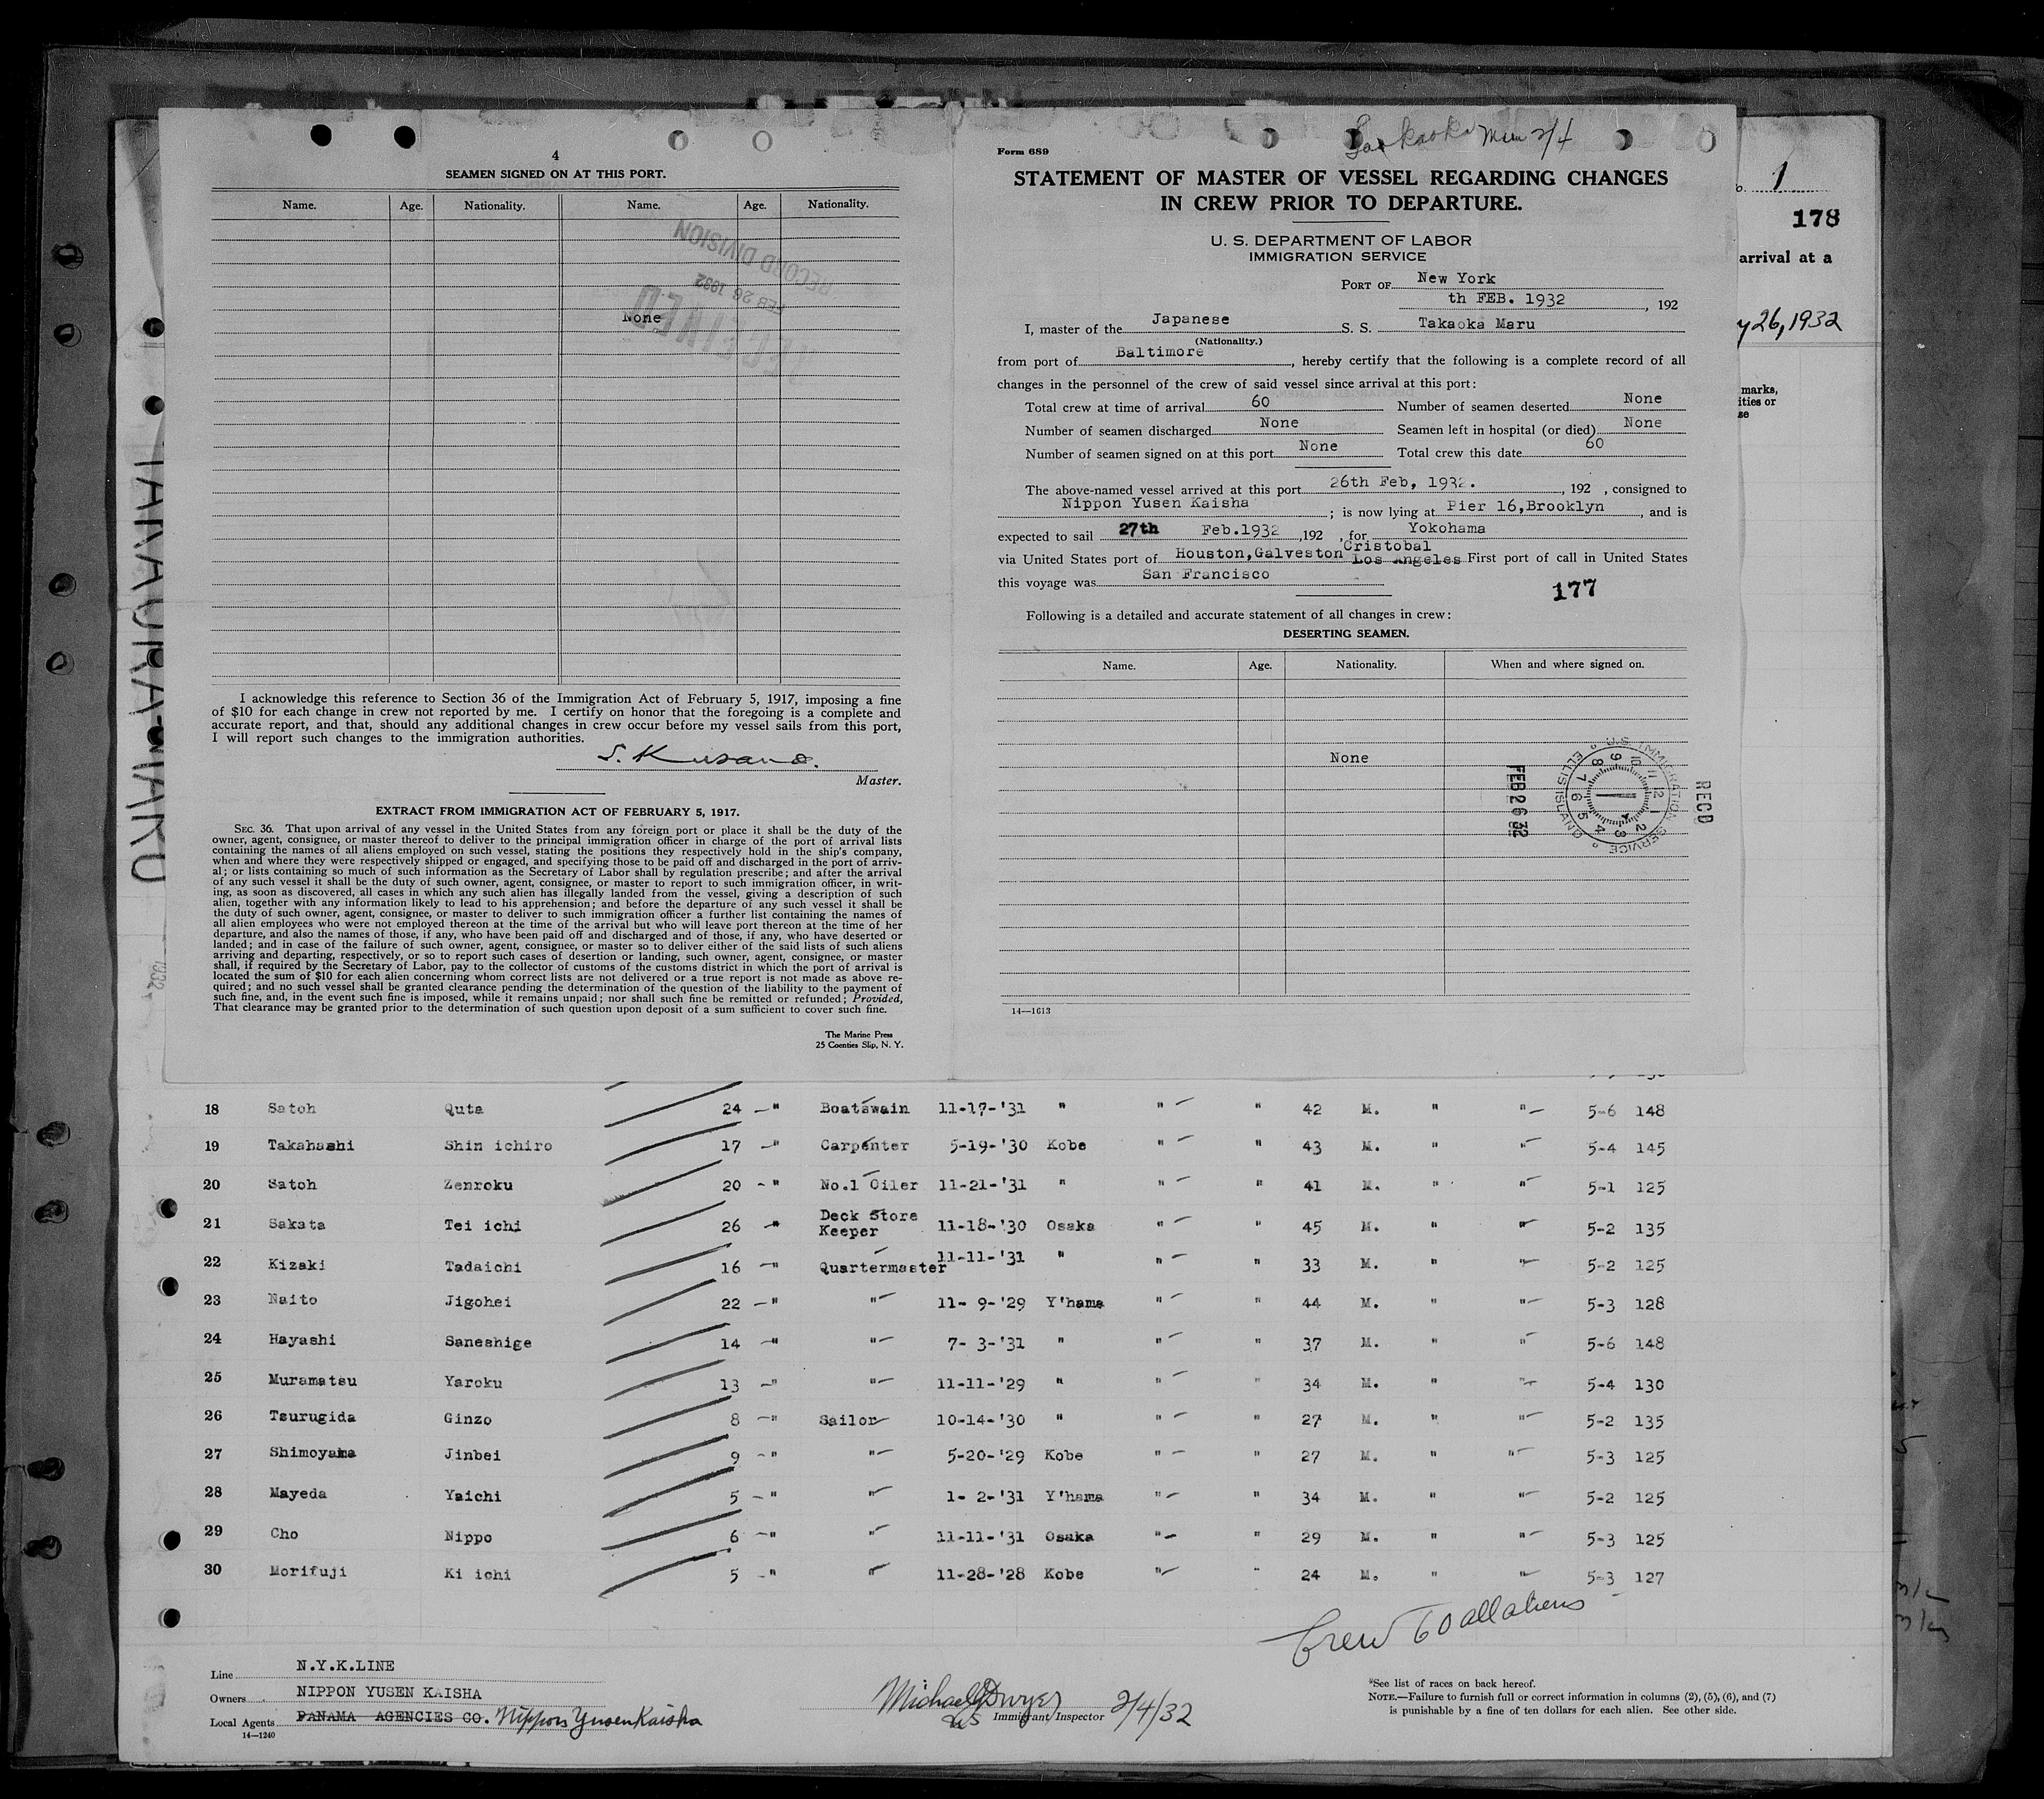 4
SEAMEN SIGNED ON AT THIS PORT.
Name. Age. Nationality. Name. Age. Nationality.
RECORD DIVISION
FEB 26 1932
RECEIVED
None
I acknowledge this reference to Section 36 of the Immigration Act of February 5, 1917, imposing a fine
of $10 for each change in crew not reported by me. I certify on honor that the foregoing is a complete and
accurate report, and that, should any additional changes in crew occur before my vessel sails from this port,
I will report such changes to the immigration authorities.
S. Kusano.
Master.
EXTRACT FROM IMMIGRATION ACT OF FEBRUARY 5, 1917.
SEC. 36. That upon arrival of any vessel in the United States from any foreign port or place it shall be the duty of the
owner, agent, consignee, or master thereof to deliver to the principal immigration officer in charge of the port of arrival lists
containing the names of all aliens employed on such vessel, stating the positions they respectively hold in the ship's company,
when and where they were respectively shipped or engaged, and specifying those to be paid off and discharged in the port of arriv-
al; or lists containing so much of such information as the Secretary of Labor shall by regulation prescribe; and after the arrival
of any such vessel it shall be the duty of such owner, agent, consignee, or master to report to such immigration officer, in writ-
ing, as soon as discovered, all cases in which any such alien has illegally landed from the vessel, giving a description of such
alien, together with any information likely to lead to his apprehension; and before the departure of any such vessel it shall be
the duty of such owner, agent, consignee, or master to deliver to such immigration officer a further list containing the names of
all alien employees who were not employed thereon at the time of the arrival but who will leave port thereon at the time of her
departure, and also the names of those, if any, who have been paid off and discharged and of those, if any, who have deserted or
landed; and in case of the failure of such owner, agent, consignee, or master so to deliver either of the said lists of such aliens
arriving and departing, respectively, or so to report such cases of desertion or landing, such owner, agent, consignee, or master
shall, if required by the Secretary of Labor, pay to the collector of customs of the customs district in which the port of arrival is
located the sum of $10 for each alien concerning whom correct lists are not delivered or a true report is not made as above re-
quired; and no such vessel shall be granted clearance pending the determination of the question of the liability to the payment of
such fine, and, in the event such fine is imposed, while it remains unpaid; nor shall such fine be remitted or refunded; Provided,
That clearance may be granted prior to the determination of such question upon deposit of a sum sufficient to cover such fine.
The Marine Press
25 Coenties Slip, N. Y.
Form 689
STATEMENT OF MASTER OF VESSEL REGARDING CHANGES
IN CREW PRIOR TO DEPARTURE.
U. S. DEPARTMENT OF LABOR
IMMIGRATION SERVICE
PORT OF New York
th FEB. 1932, 192
I, master of the Japanese S. S. Takaoka Maru
(Nationality.)
from port of Baltimore, hereby certify that the following is a complete record of all
changes in the personnel of the crew of said vessel since arrival at this port:
Total crew at time of arrival 60 Number of seamen deserted None
Number of seamen discharged None Seamen left in hospital (or died) None
Number of seamen signed on at this port None Total crew this date 60
The above-named vessel arrived at this port 26th Feb, 1932. , 192 , consigned to
Nippon Yusen Kaisha ; is now lying at Pier 16,Brooklyn , and is
expected to sail 27th Feb.1932 ,192 , for Yokohama
Cristobal
via United States port of Houston,Galveston Los Angeles First port of call in United States
this voyage was San Francisco
177
Following is a detailed and accurate statement of all changes in crew:
DESERTING SEAMEN.
Name. Age. Nationality. When and where signed on.
None
RECD
U.S. IMMIGRATION SERVICE
ELLIS ISLAND
FEB 26 32
14—1613
1
178
arrival at a
y 26, 1932
marks,
ities or
se
TAKAOKA MARU
18 Satoh Quta 24 " Boatswain 11-17-'31 " " " 42 M. " " 5-6 148
19 Takahashi Shin ichiro 17 " Carpenter 5-19-'30 Kobe " " 43 M. " " 5-4 145
20 Satoh Zenroku 20 " No.1 Oiler 11-21-'31 " " " 41 M. " " 5-1 125
21 Sakata Tei ichi 26 " Deck Store Keeper 11-18-'30 Osaka " " 45 M. " " 5-2 135
22 Kizaki Tadaichi 16 " Quartermaster 11-11-'31 " " " 33 M. " " 5-2 125
23 Naito Jigohei 22 " " 11- 9-'29 Y'hama " " 44 M. " " 5-3 128
24 Hayashi Saneshige 14 " " 7- 3-'31 " " " 37 M. " " 5-6 148
25 Muramatsu Yaroku 13 " " 11-11-'29 " " " 34 M. " " 5-4 130
26 Tsurugida Ginzo 8 " Sailor 10-14-'30 " " " 27 M. " " 5-2 135
27 Shimoyama Jinbei 9 " " 5-20-'29 Kobe " " 27 M. " " 5-3 125
28 Mayeda Yaichi 5 " " 1- 2-'31 Y'hama " " 34 M. " " 5-2 125
29 Cho Nippo 6 " " 11-11-'31 Osaka " " 29 M. " " 5-3 125
30 Morifuji Ki ichi 5 " " 11-28-'28 Kobe " " 24 M. " " 5-3 127
Crew 60 all aliens
Line N.Y.K.LINE
Owners NIPPON YUSEN KAISHA
Local Agents PANAMA AGENCIES CO. Nippon Yusen Kaisha
14—1240
Michael J Dwyer 2/4/32
US Immigrant Inspector
*See list of races on back hereof.
NOTE.—Failure to furnish full or correct information in columns (2), (5), (6), and (7)
is punishable by a fine of ten dollars for each alien. See other side.